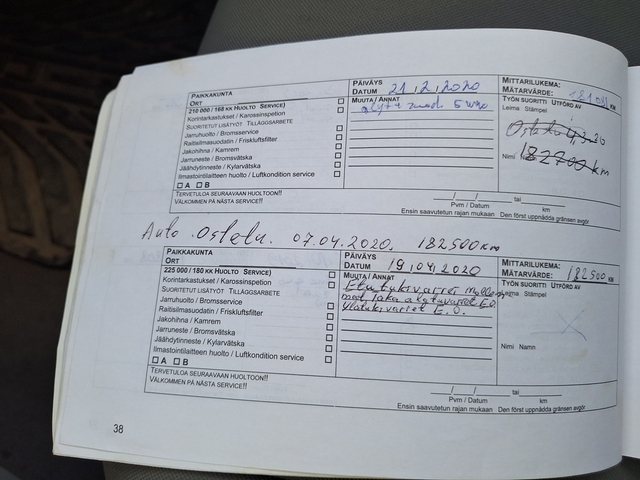 PAIKKAKUNTA
ORT
PÄIVÄYS
DATUM 21.2.2020
MITTARILUKEMA:
MÄTARVÄRDE: KM
210 000 / 168 KK HUOLTO SERVICE)
MUUTA / ANNAT
TYÖN SUORITTI UTFÖRD AV
Leima Stämpel
Korintarkastukset / Karossinspetion
SUORITETUT LISÄTYÖT TILLÄGGSARBETE
Jarruhuolto / Bromsservice
Raitisilmasuodatin / Friskluftsfilter
Jakohihna / Kamrem
Jarruneste / Bromsvätska
Jäähdytinneste / Kylarvätska
Ilmastointilaitteen huolto / Luftkondition service
A B
182700 km
Nimi
TERVETULOA SEURAAVAAN HUOLTOON!!
VÄLKOMMEN PÅ NÄSTA SERVICE!!
/ / tai
Pvm / Datum km
Ensin saavutetun rajan mukaan Den först uppnådda gränsen avgör
Auto Ostettu. 07.04.2020. 182500 km
PAIKKAKUNTA
ORT
PÄIVÄYS
DATUM 19.04.2020
MITTARILUKEMA:
MÄTARVÄRDE: 182500 KM
225 000 / 180 KK HUOLTO SERVICE)
MUUTA / ANNAT
TYÖN SUORITTI UTFÖRD AV
Leima Stämpel
Korintarkastukset / Karossinspetion
SUORITETUT LISÄTYÖT TILLÄGGSARBETE
Jarruhuolto / Bromsservice
Raitisilmasuodatin / Friskluftsfilter
Jakohihna / Kamrem
Jarruneste / Bromsvätska
Jäähdytinneste / Kylarvätska
Ilmastointilaitteen huolto / Luftkondition service
A B
Etutukivarret
Taka alatukivarret E.O.
Ylätukivarret E.O.
Nimi Namn
TERVETULOA SEURAAVAAN HUOLTOON!!
VÄLKOMMEN PÅ NÄSTA SERVICE!!
/ / tai
Pvm / Datum km
Ensin saavutetun rajan mukaan Den först uppnådda gränsen avgör
38